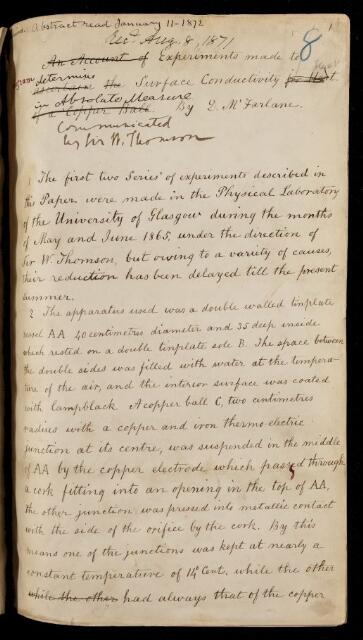 Abstract read January 11-1872
Rec.d Aug. 8, 1871
8
An Account of Experiments made to
determine the Surface Conductivity for Heat
in Absolute Measure
of a Copper Ball By D. McFarlane.
Communicated
by Sir W. Thomson
The first two Series' of experiments described in
this Paper were made in the Physical Laboratory
of the University of Glasgow during the months
of May and June 1865, under the direction of
Sir W. Thomson, but owing to a variety of causes,
their reduction has been delayed till the present
summer.
2 The apparatus used was a double walled tinplate
vessel AA 40 centimetres diameter and 35 deep inside
which rested on a double tinplate sole B. The space between
the double sides was filled with water at the tempera-
ture of the air, and the interior surface was coated
with lampblack A copper ball C, two centimetres
radius with a copper and iron thermo electric
junction at its centre, was suspended in the middle
of AA by the copper electrode which passed through
a cork fitting into an opening in the top of AA,
the other junction was pressed into metallic contact
with the side of the orifice by the cork. By this
means one of the junctions was kept at nearly a
constant temperature of 14° Cent, while the other
while the other had always that of the copper